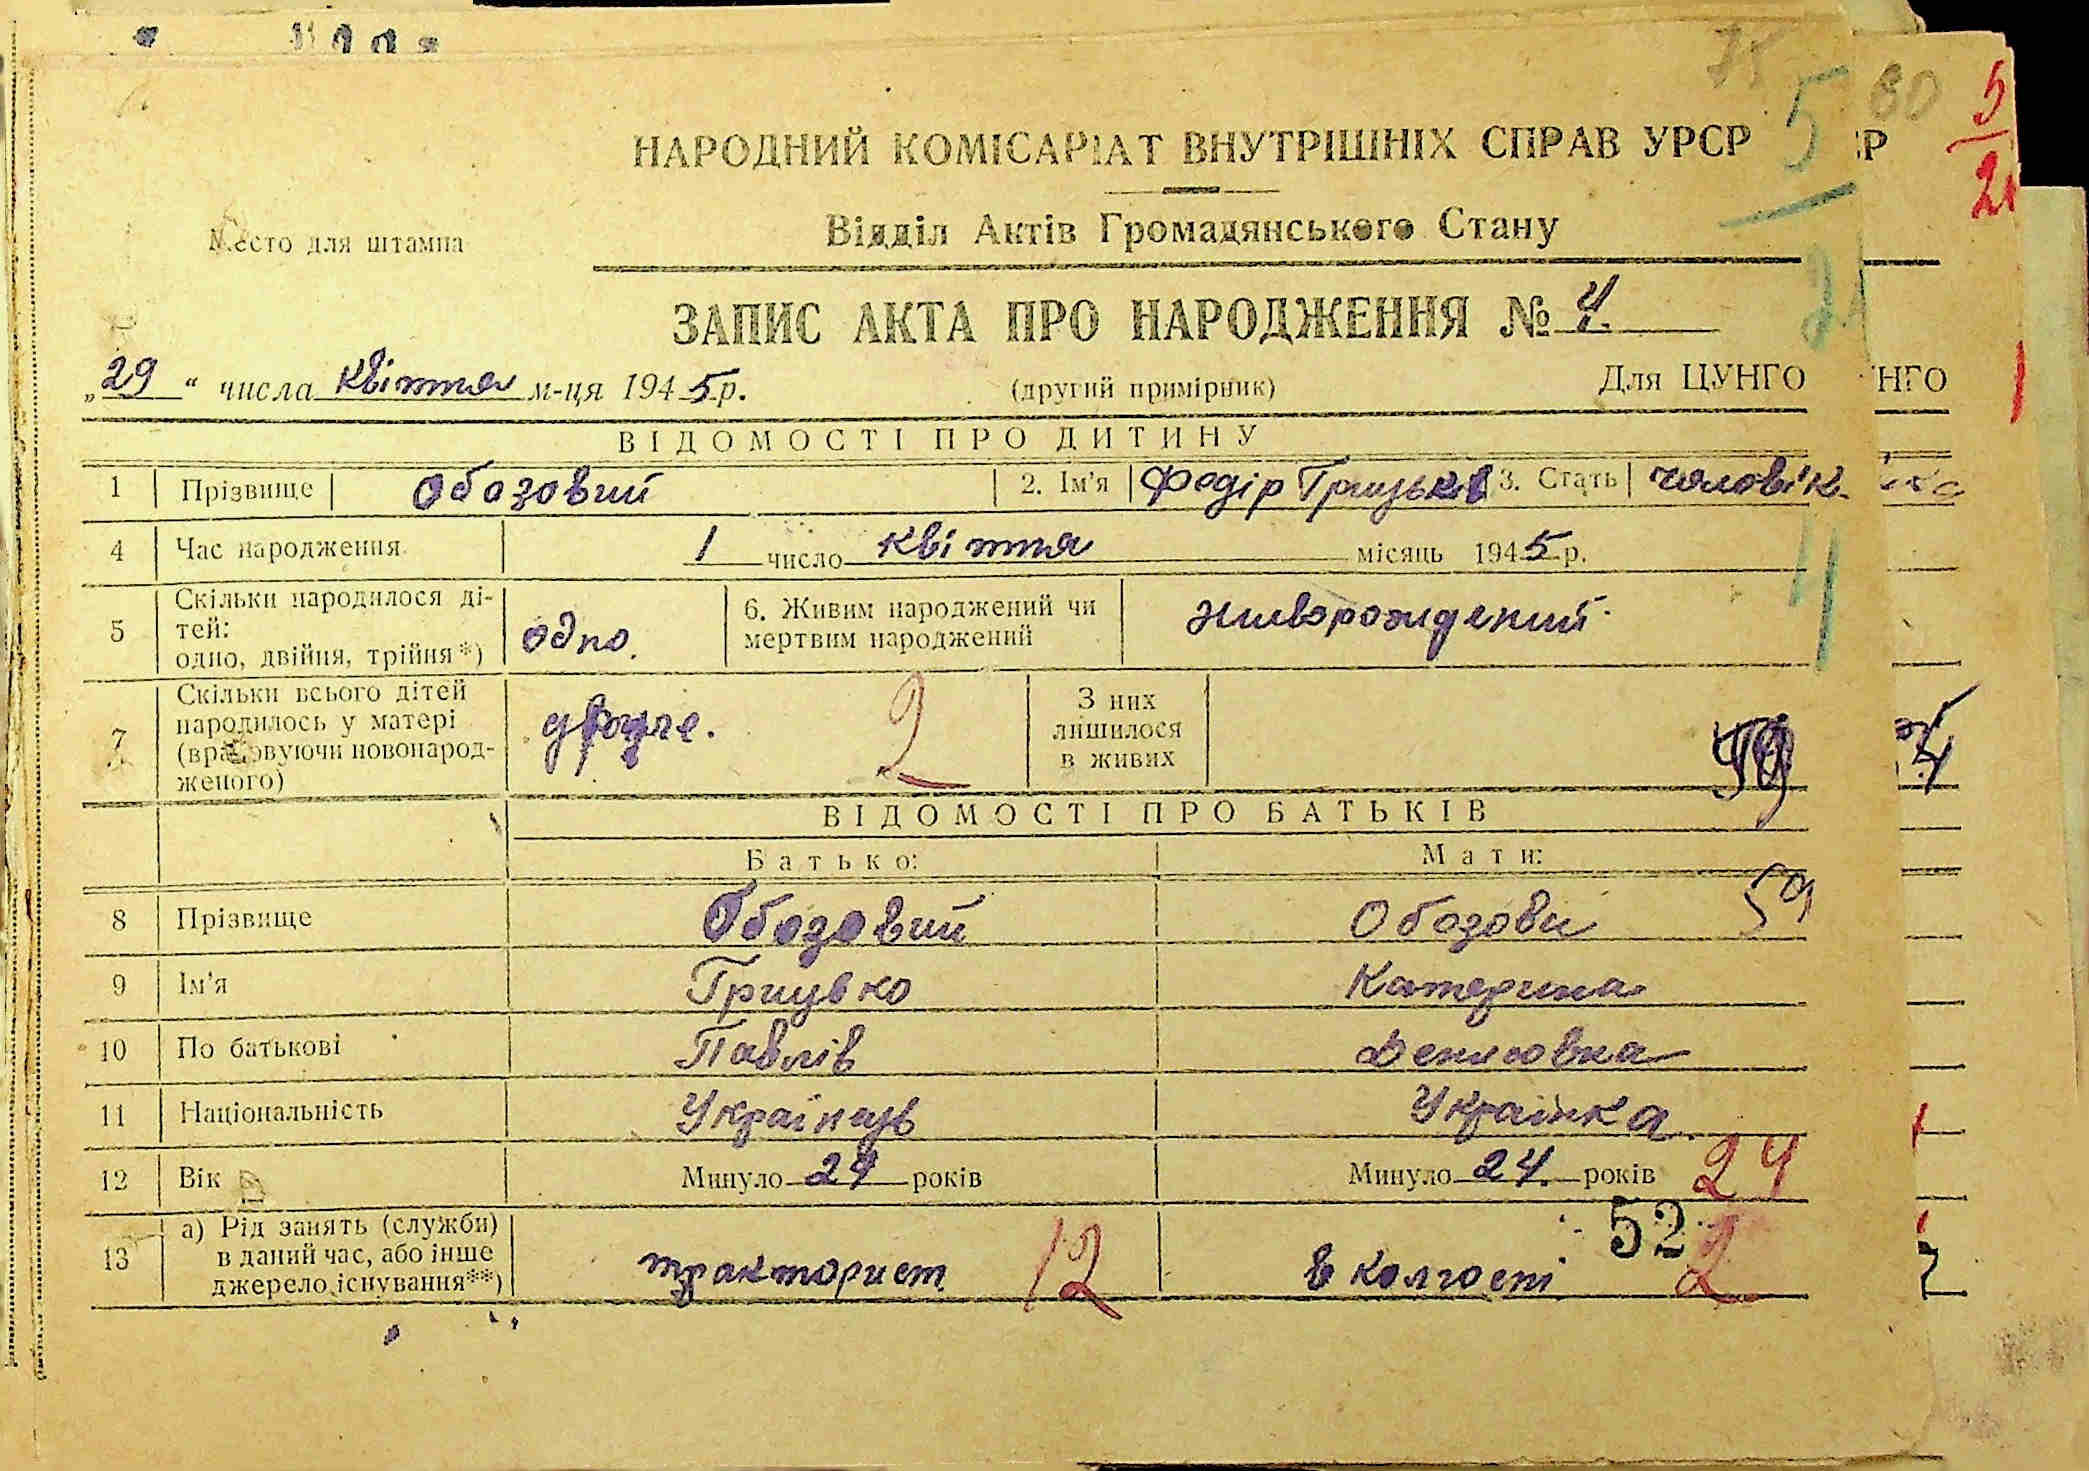 75
5
80
5
НАРОДНИЙ КОМІСАРІАТ ВНУТРІШНІХ СПРАВ УРСР
Р
21
Место для штампа
Відділ Актів Громадянського Стану
21
ЗАПИС АКТА ПРО НАРОДЖЕННЯ № 4.
„29“ числа квітня м-ця 1945 р. (другий примірник) Для ЦУНГО
НГО
ВІДОМОСТІ ПРО ДИТИНУ
1 Прізвище Обозовий 2. Ім'я Федір Грицьків 3. Стать чоловік.
4 Час народження 1 число квітня місяць 1945 р.
5 Скільки народилося ді-
тей:
одно, двійня, трійня*) одно. 6. Живим народжений чи
мертвим народжений живорождений.
7 Скільки всього дітей
народилось у матері
(враховуючи новонарод-
женого) друге. 2 З них
лишилося
в живих
ВІДОМОСТІ ПРО БАТЬКІВ
Батько: Мати:
8 Прізвище Обозовий Обозови 59
9 Ім'я Грицько Катерина
10 По батькові Павлів Денисовна
11 Національність Українець Українка
12 Вік Минуло 29 років Минуло 24. років 24
13 а) Рід занять (служби)
в даний час, або інше
джерело існування**) тракторист 12 в колгоспі 52 2